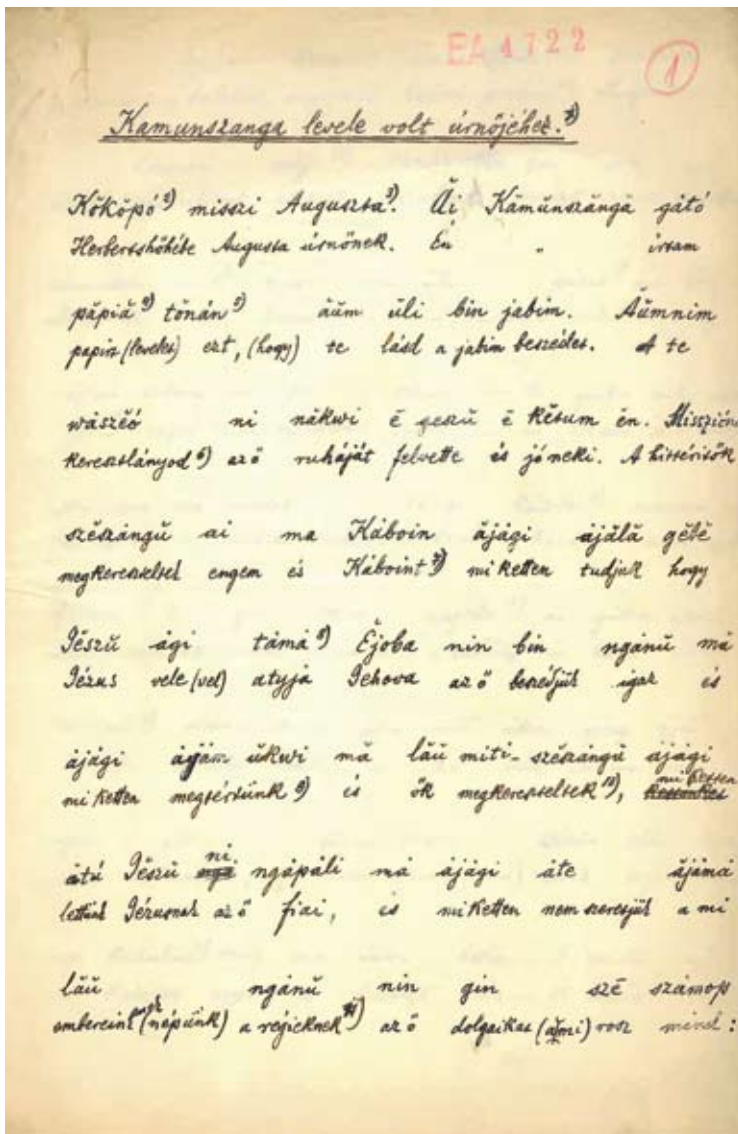 EA 4722
1
Kamunszanga levele volt úrnőjéhez.
Kŏkŏpó²⁾ misszi Auguszta³⁾. Ăi Kămŭnszăngă gátó
Herbertshöhébe Augusta úrnőnek. Én " írtam
păpiă⁴⁾ tŏnán⁵⁾ áŭm ŭli bin jabim. Ăŭmnim
papirt (levelet) ezt, (hogy) te lásd a jabim beszédet. A te
wászĕó ni nákwi ĕ geszŭ ĕ kĕtum én. Misszión
keresztlányod⁶⁾ az ő ruháját felvette és jó neki. A hittérítők
szĕszángŭ ai ma Káboin ăjági ájălă gĕbĕ
megkereszteltek engem és Káboint⁷⁾ mi ketten tudjuk hogy
Jĕszŭ ági támá⁸⁾ Ĕjoba nin bin ngánŭ má
Jézus vele (vel) atyjá Jehova az ő beszédjük igaz és
ájági ájám ŭkwi mă lăŭ miti-szĕszángŭ ájági
mi ketten megtértünk⁹⁾ és ők megkereszteltek¹⁰⁾, mi ketten
átú Jĕszŭ ni ngápáli má ájági áte ăjámă
lettünk Jézusnak az ő fiai, és mi ketten nem szeretjük a mi
lăŭ ngánŭ nin gin szĕ számop
embereink (népünk) a régieknek¹¹⁾ az ő dolgaikat (ami) rosz mind: